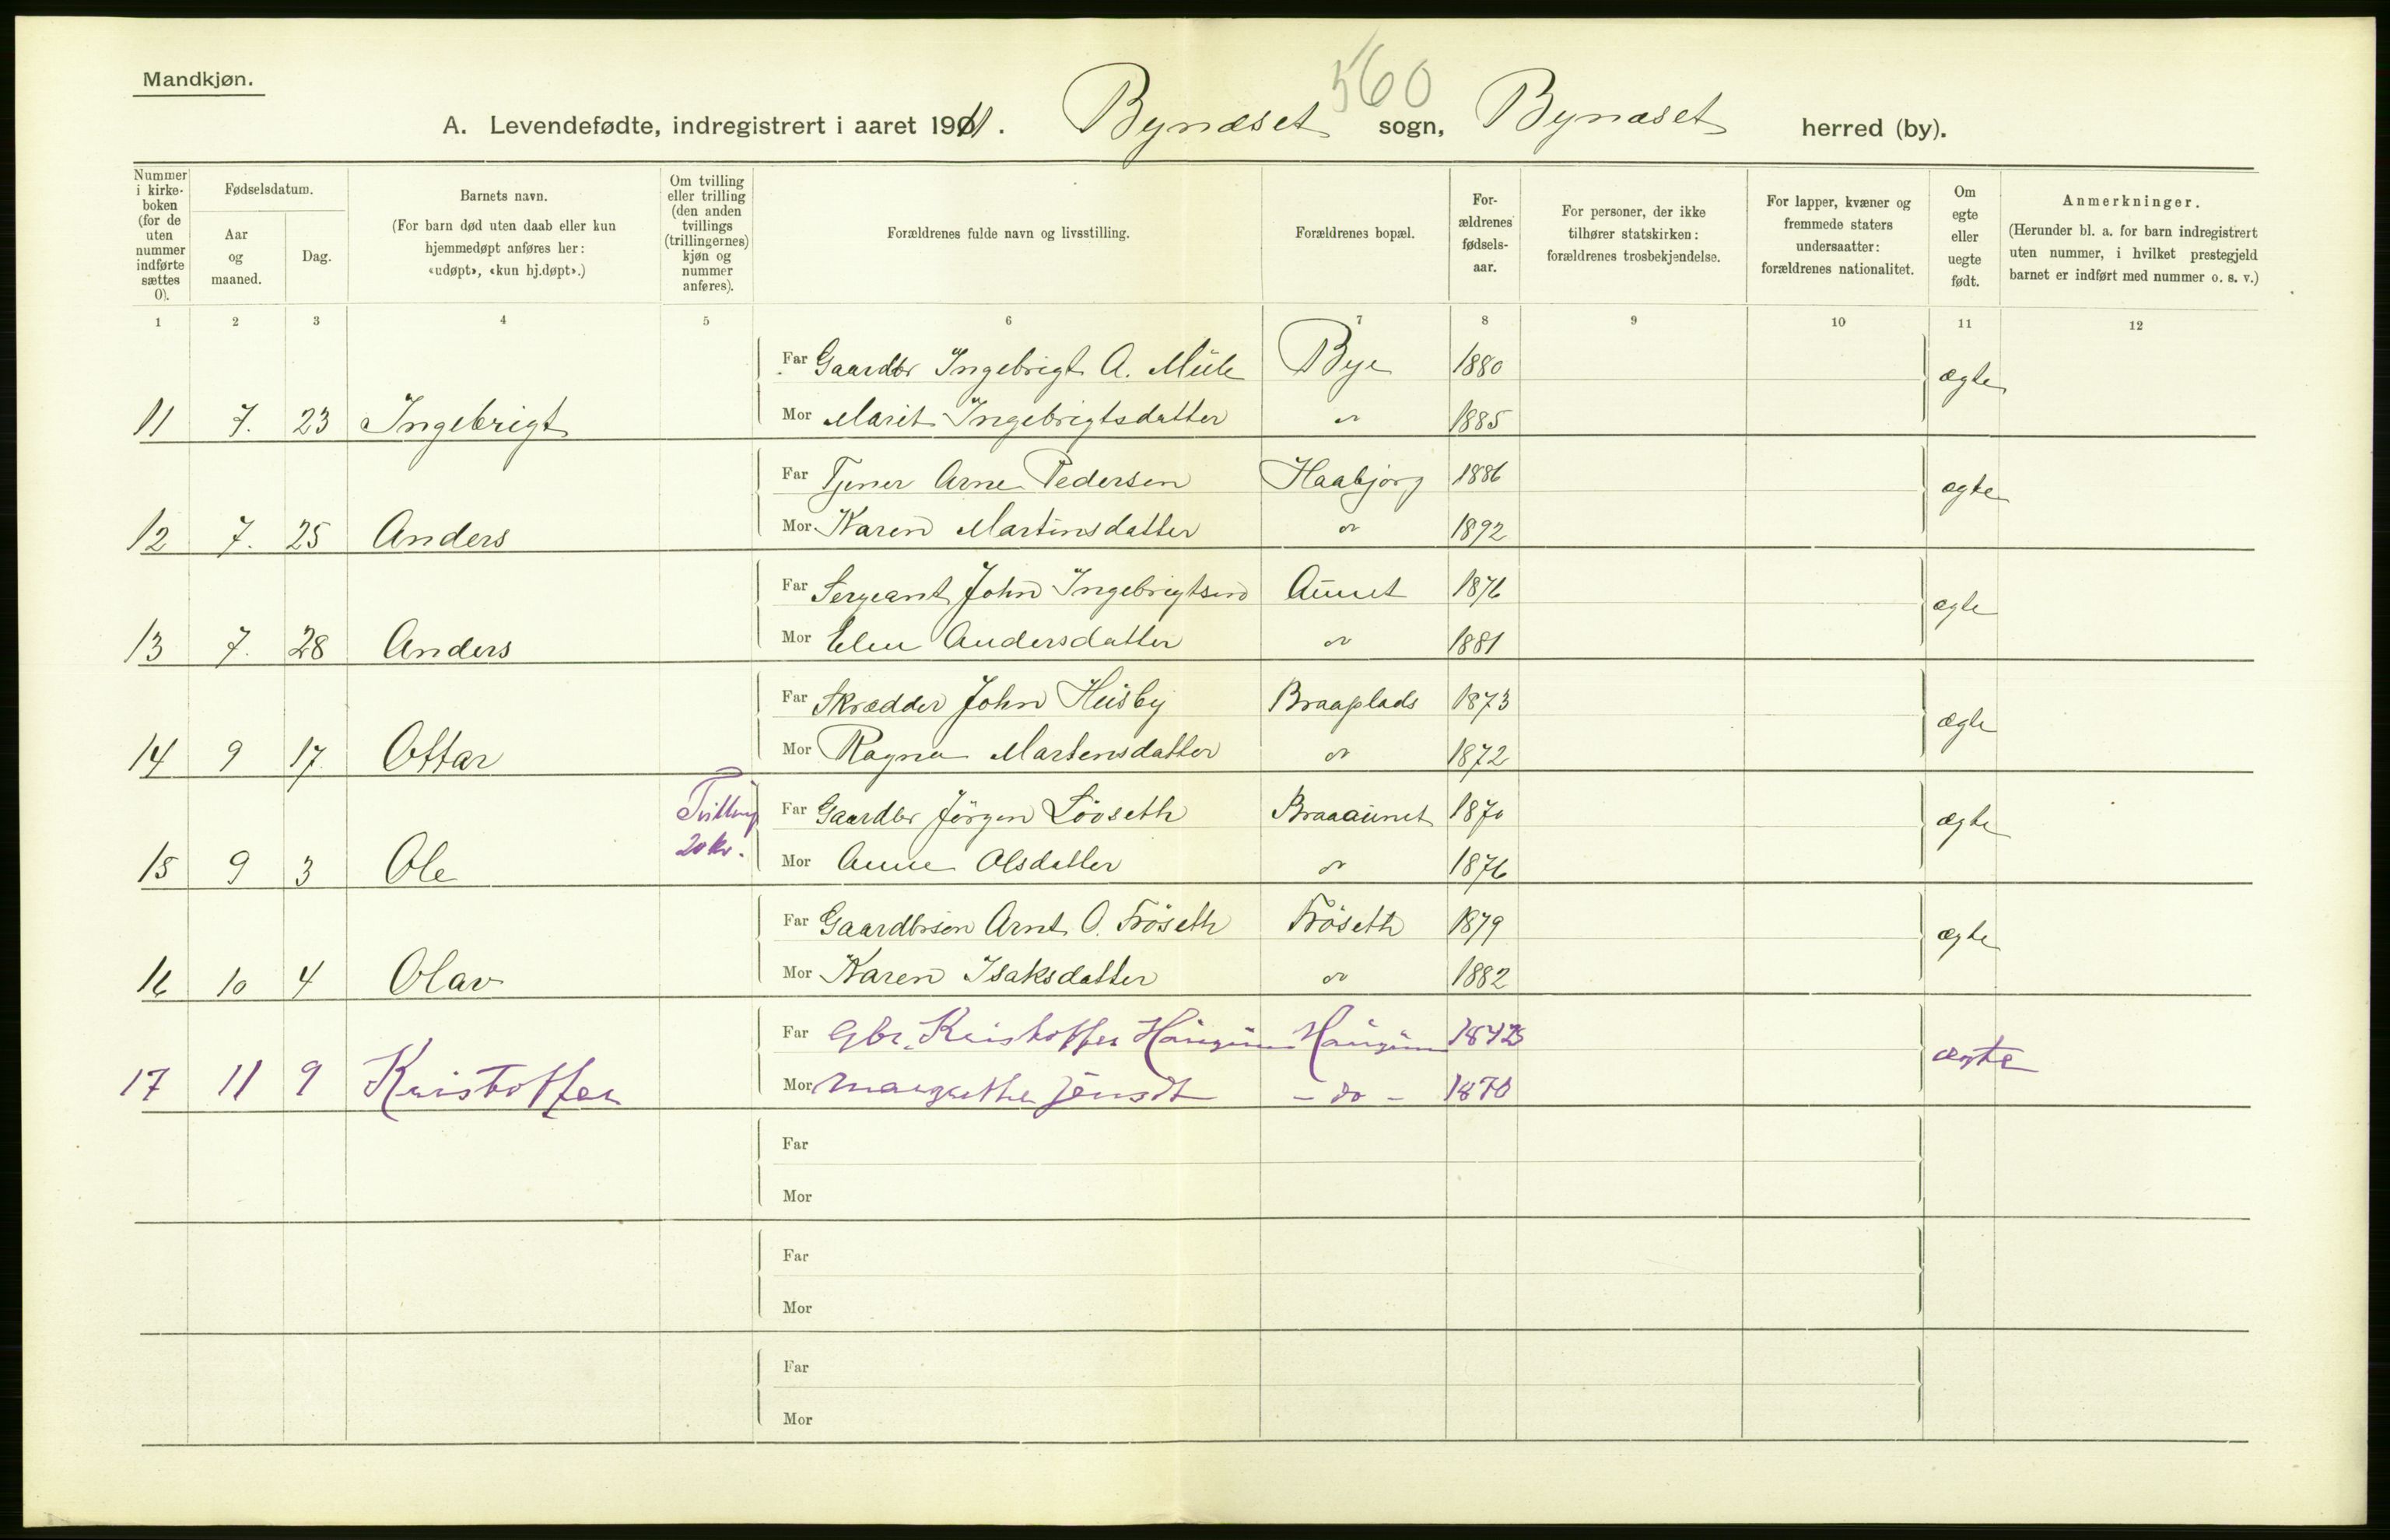 560
Mandkjøn.
A. Levendefødte, indregistrert i aaret 1911. Bynæset sogn, Bynæset herred (by).
Nummer i kirkeboken (for de uten nummer indførte sættes 0).
Fødselsdatum.
Aar og maaned.
Dag.
Barnets navn.
(For barn død uten daab eller kun hjemmedøpt anføres her: «udøpt», «kun hj.døpt».)
Om tvilling eller trilling (den anden tvillings (trillingernes) kjøn og nummer anføres).
Forældrenes fulde navn og livsstilling.
Forældrenes bopæl.
Forældrenes fødselsaar.
For personer, der ikke tilhører statskirken: forældrenes trosbekjendelse.
For lapper, kvæner og fremmede staters undersaatter: forældrenes nationalitet.
Om egte eller uegte født.
Anmerkninger.
(Herunder bl. a. for barn indregistrert uten nummer, i hvilket prestegjeld barnet er indført med nummer o. s. v.)
1 2 3 4 5 6 7 8 9 10 11 12
Far Gaardbr Ingebrigt A. Mule Bye 1880 ægte
11 7. 23 Ingebrigt Mor Marit Ingebrigtsdatter do 1885
Far Tjener Arne Pedersen Haabjørg 1886 ægte
12 7. 25 Anders Mor Karen Martinsdatter do 1892
Far Sergeant John Ingebrigtsen Aunet 1876 ægte
13 7. 28 Anders Mor Elen Andersdatter do 1881
Far Skrædder John Husby Braaplads 1873 ægte
14 9 17 Ottar Mor Ragna Martensdatter do 1872
Tvilling Far Gaardbr Jörgen Lövseth Braaaunet 1870 ægte
15 9 3 Ole 20 kv. Mor Anne Olsdatter do 1876
Far Gaardbrsøn Arnt O. Fröseth Fröseth 1879 ægte
16 10 4 Olav Mor Karen Isaksdatter do 1882
Far Gbr. Kristoffer Haugum Haugum ægte
17 11 9 Kristoffer Mor Margrethe Jensdt - do - 1870
Far
Mor
Far
Mor
Far
Mor